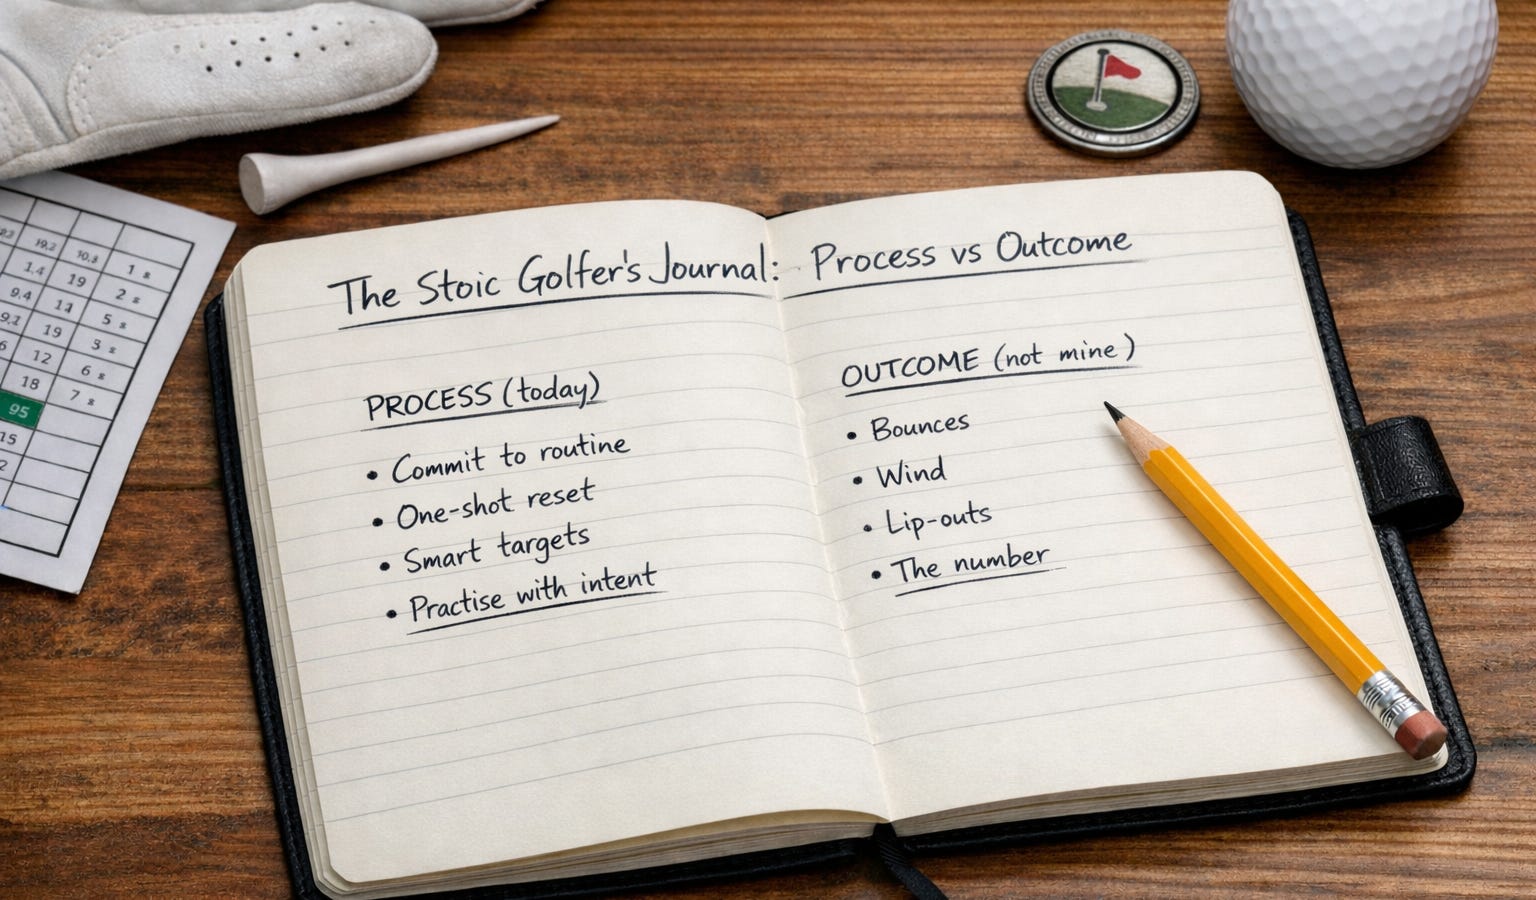 The Stoic Golfer's Journal: Process vs Outcome
PROCESS (today)
• Commit to routine
• One-shot reset
• Smart targets
• Practise with intent
OUTCOME (not mine)
• Bounces
• Wind
• Lip-outs
• The number
19.2 10.3
1.4 19 1 s
9.4 11 2 s
19 5 s
12 3 s
18 6 s
95 7 s
15
2